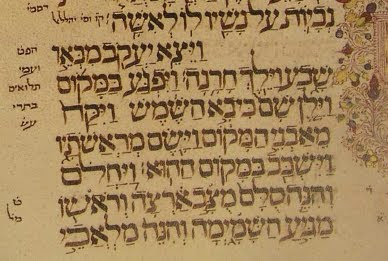 נְבָיוֹת עַל נָשָׁיו לוֹ לְאִשָּׁה
וַיֵּצֵא יַעֲקֹב מִבְּאֵר
שָׁבַע וַיֵּלֶךְ חָרָנָה וַיִּפְגַּע בַּמָּקוֹם
וַיָּלֶן שָׁם כִּי בָא הַשֶּׁמֶשׁ וַיִּקַּח
מֵאַבְנֵי הַמָּקוֹם וַיָּשֶׂם מְרַאֲשֹׁתָיו
וַיִּשְׁכַּב בַּמָּקוֹם הַהוּא וַיַּחֲלֹם
וְהִנֵּה סֻלָּם מֻצָּב אַרְצָה וְרֹאשׁוֹ
מַגִּיעַ הַשָּׁמָיְמָה וְהִנֵּה מַלְאֲכֵי
הפט
ועמי
תלואים
בתרי